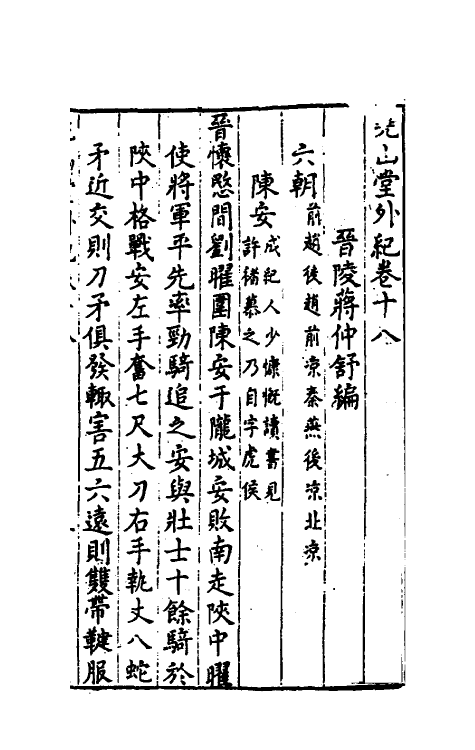 堯山堂外紀卷十八
晉陵蔣仲舒編
六朝 前趙後趙前涼秦燕後涼北涼
陳安 成紀人少慷慨讀書見
許褚慕之乃自字虎侯
晉懷愍間劉曜圍陳安于隴城安敗南走陜中曜
使將軍平先率勁騎追之安與壯士十餘騎於
陜中格戰安左手奮七尺大刀右手執丈八蛇
矛近交則刀矛俱發輙害五六遠則雙帶鞬服